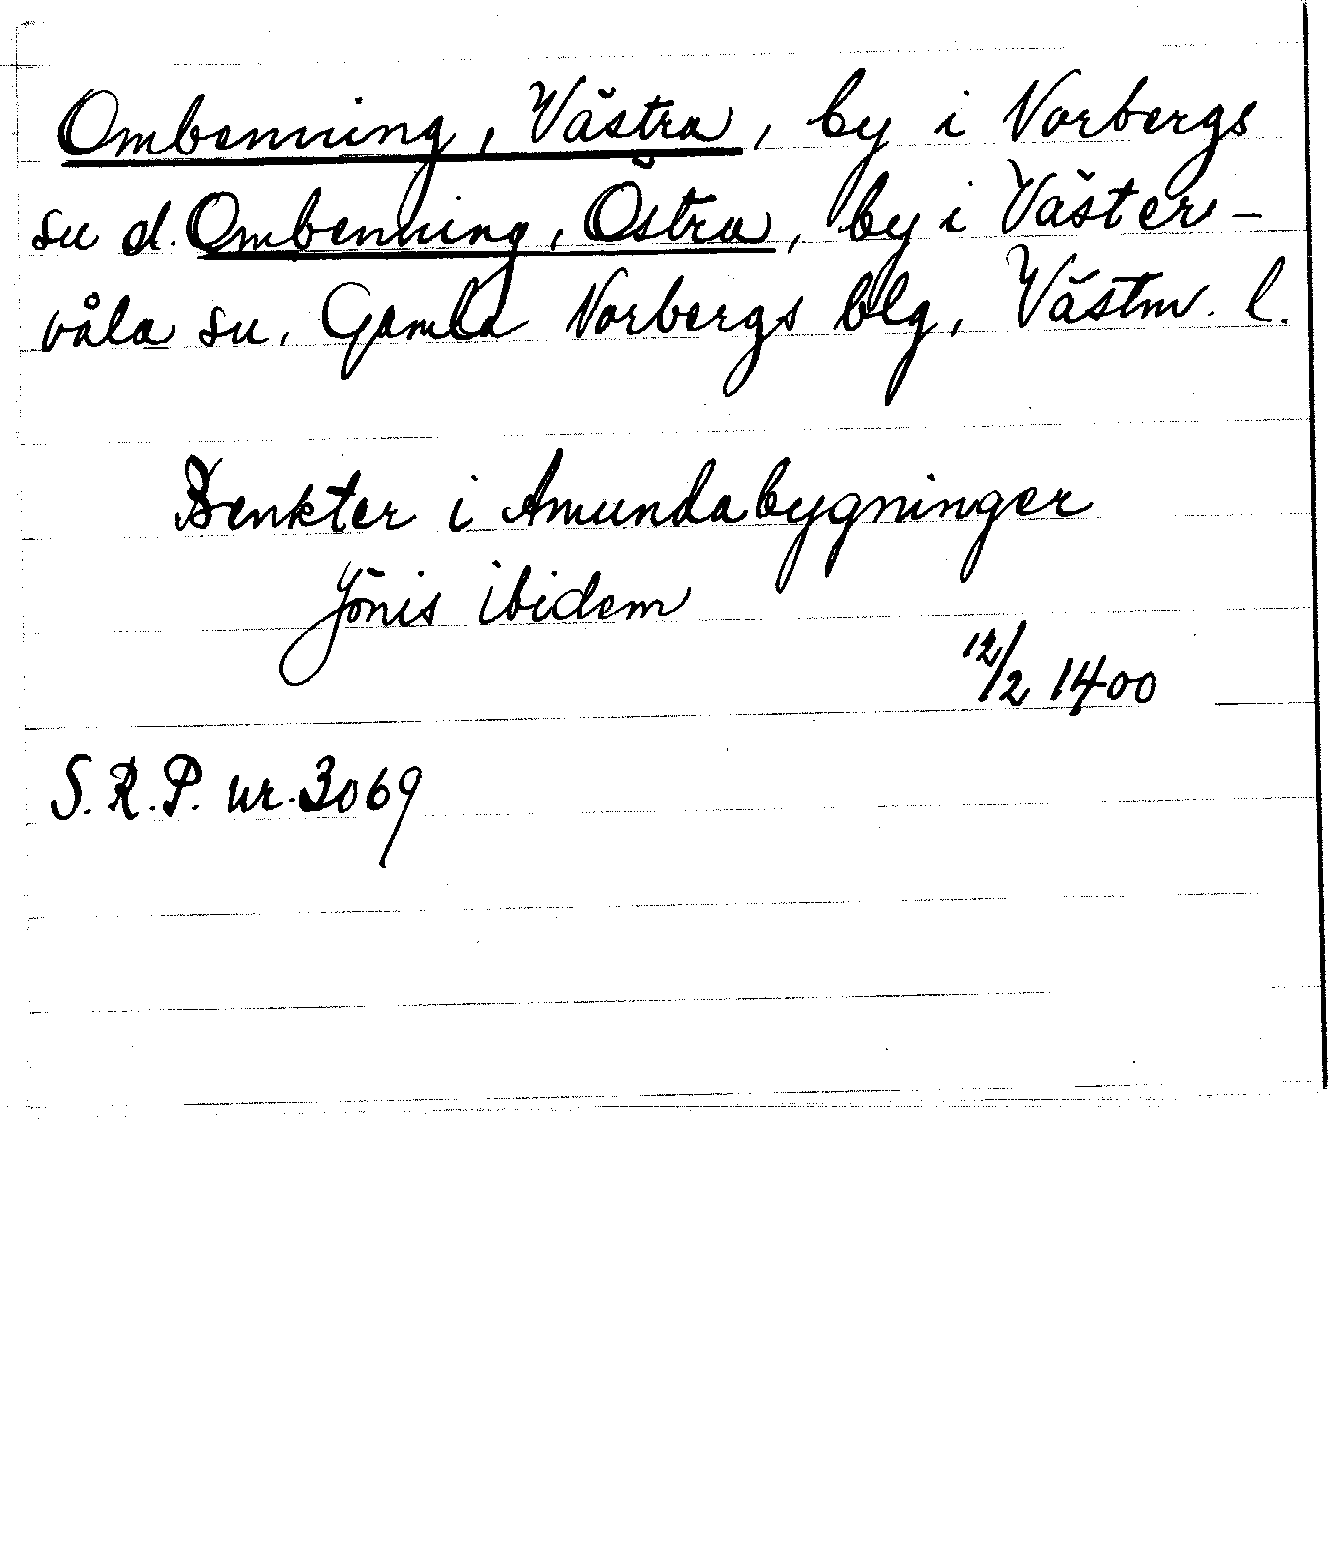 Ombenning, Västra, by i Norbergs
sn el. Ombenning, Östra, by i Väster-
våla sn, Gamla Norbergs blg, Västm. l.
Benkter i Amundabygninger
Jönis ibidem
12/2 1400
S.R.P. nr. 3069